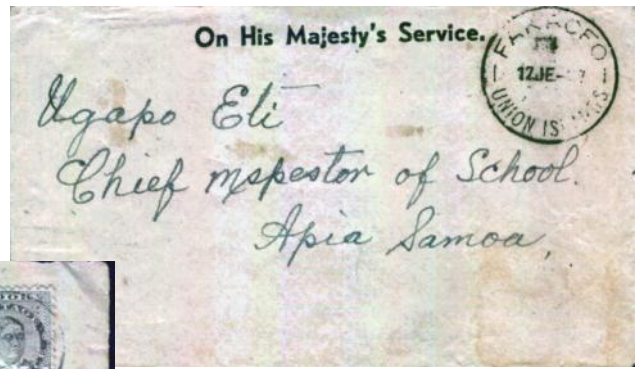 On His Majesty's Service.
FAKAOFO
12JE
UNION
Ugapo Eti
Chief mspestor of School.
Apia Samoa,